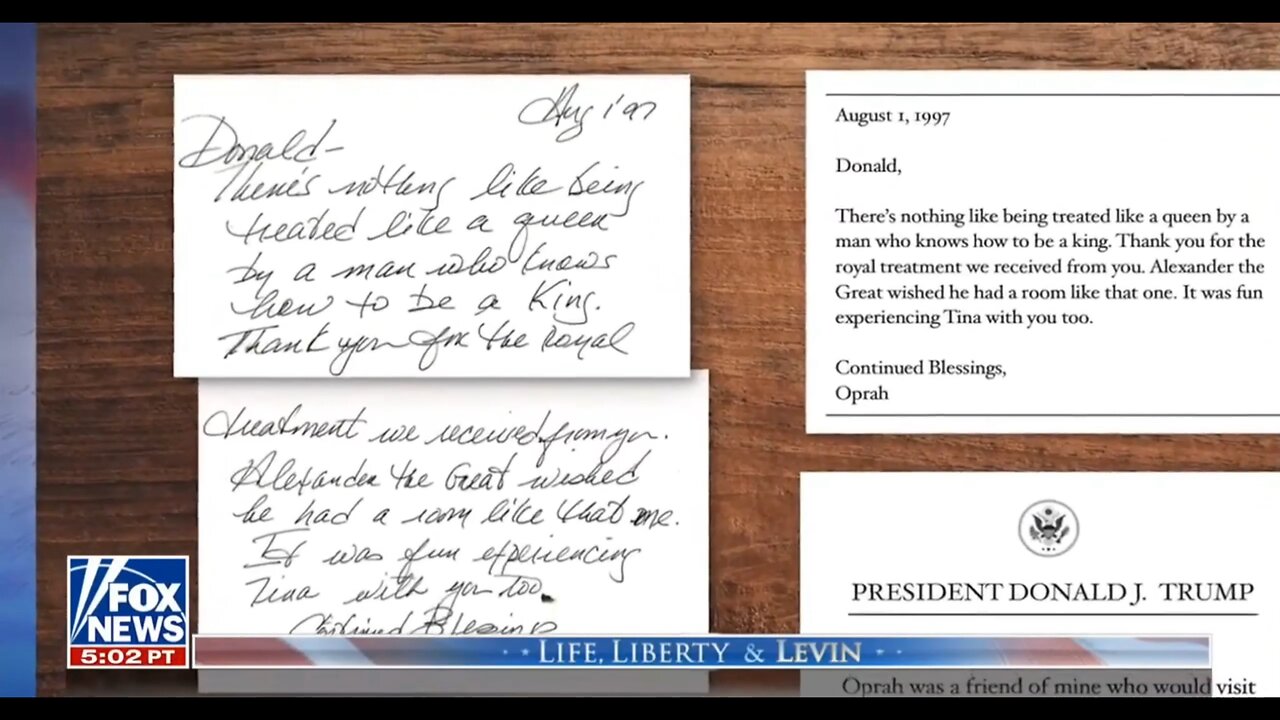 Aug 1 '97
Donald-
There's nothing like being
treated like a queen
by a man who knows
how to be a King.
Thank you for the royal
treatment we received from you.
Alexander the Great wished
he had a room like that one.
It was fun experiencing
Tina with you too.
Continued Blessings
August 1, 1997
Donald,
There's nothing like being treated like a queen by a
man who knows how to be a king. Thank you for the
royal treatment we received from you. Alexander the
Great wished he had a room like that one. It was fun
experiencing Tina with you too.
Continued Blessings,
Oprah
PRESIDENT DONALD J. TRUMP
Oprah was a friend of mine who would visit
FOX
NEWS
5:02 PT
LIFE, LIBERTY & LEVIN